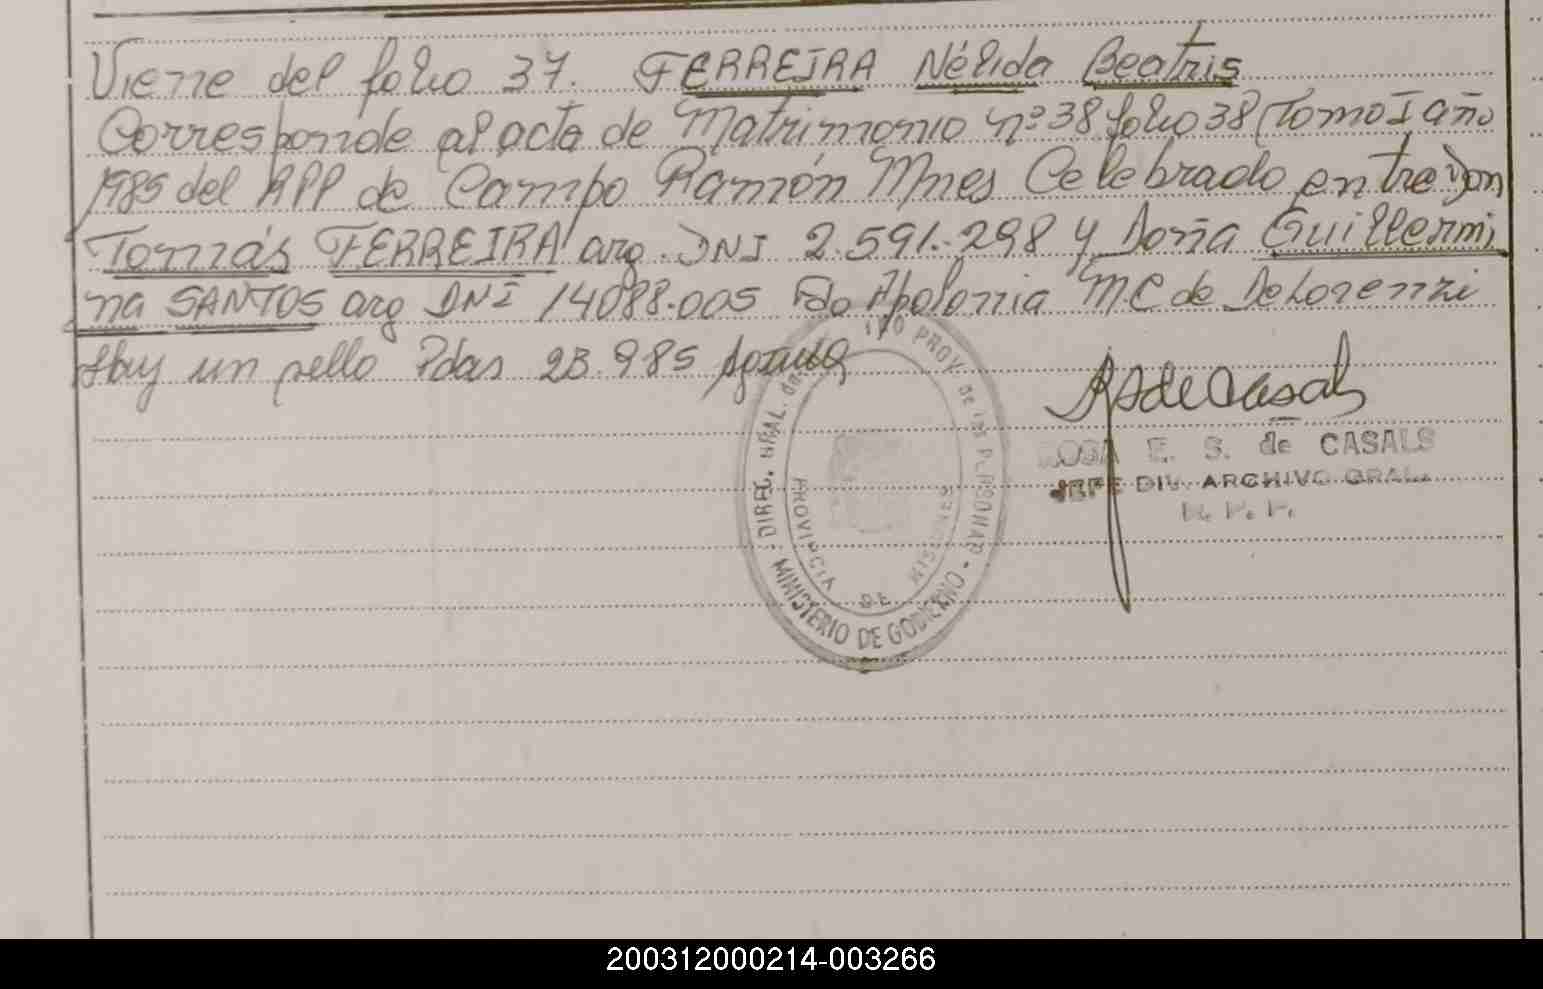 Viene del folio 37. FERREIRA Nélida Beatris
Corresponde al acta de Matrimonio nº 38 folio 38 Tomo I año
1985 del RPP de Campo Ramón Mnes Celebrado entre Don
Tomás FERREIRA arg. DNI 2.591.298 y Doña Guillermi
na SANTOS arg DNI 14088.005 Fdo Apolonia M.C de DeLorenzi
Hay un sello Pdas 23.985
RSdeCasals
ROSA E. S. de CASALS
JEFE DIV. ARCHIVO GRAL.
R. P. P.
DIREC. GRAL. DEL PROV. DE LAS PERSONAS - MINISTERIO DE GOBIERNO
PROVINCIA DE MISIONES
200312000214-003266